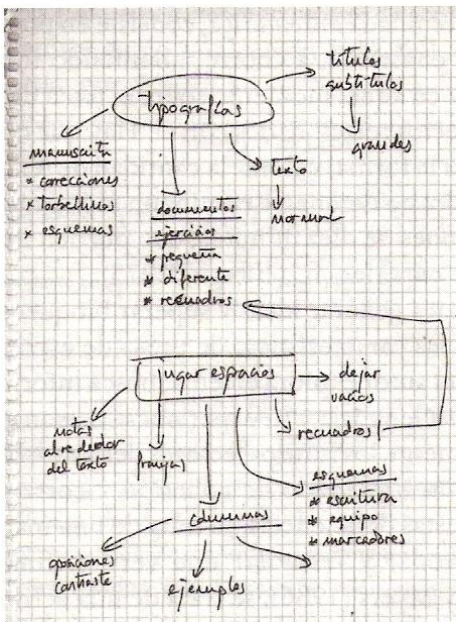 títulos
subtítulos
tipografías
grandes
manuscrita
* correcciones
* torbellinos
* esquemas
texto
normal
documentos
ejercicios
* pequeña
* diferente
* recuadros
jugar espacios
dejar
vacíos
notas
alrededor
del texto
franjas
recuadros
esquemas
* escritura
* equipo
* marcadores
columnas
oposiciones
contraste
ejemplos